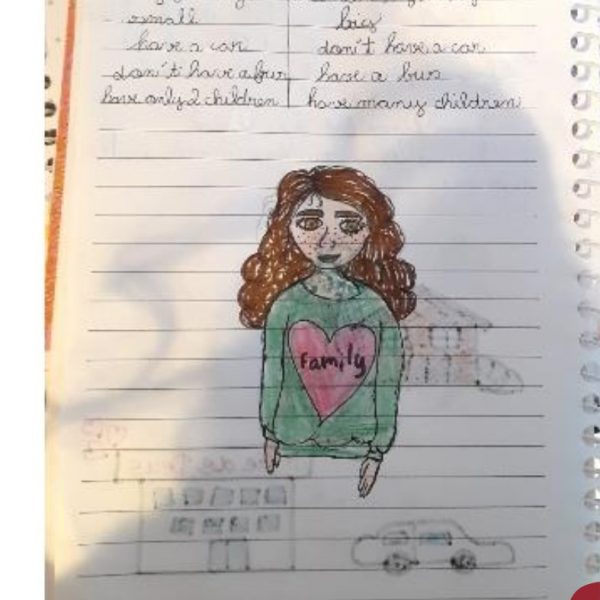 small big
have a car don't have a car
don't have a bus have a bus
have only 2 children have many children
Family